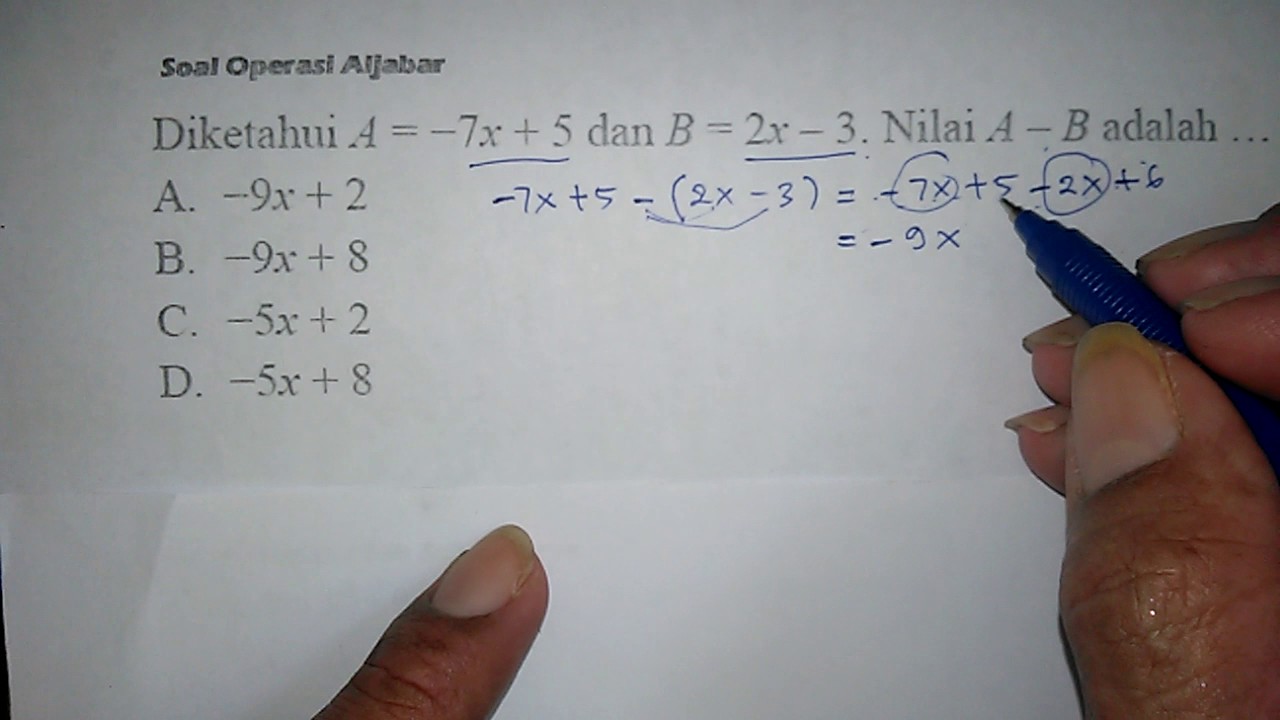 Soal Operasi Aljabar
Diketahui A = −7x + 5 dan B = 2x − 3. Nilai A − B adalah ...
A. −9x + 2
B. −9x + 8
C. −5x + 2
D. −5x + 8
-7x+5 -(2x-3) = -7x+5-2x+6
= -9x